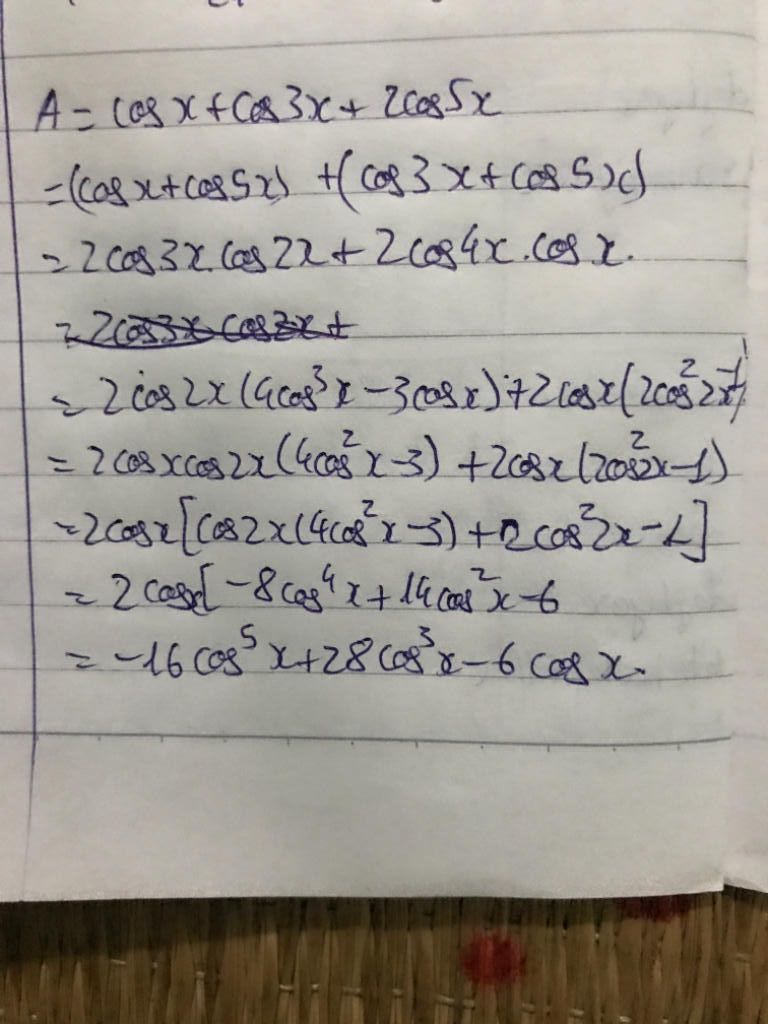 A = cos x + cos3x + 2cos5x
= (cos x + cos5x) + (cos3x + cos5x)
= 2cos3x.cos2x + 2cos4x.cos x.
= 2cos3x cos2x +
= 2cos2x(4cos³x - 3cosx) + 2cosx(2cos²2x-1)
= 2cosxcos2x(4cos²x-3) + 2cosx(2cos²2x-1)
= 2cosx[cos2x(4cos²x-3) + 2cos²2x-1]
= 2cosx[-8cos⁴x + 14cos²x-6
= -16cos⁵x + 28cos³x - 6cos x.